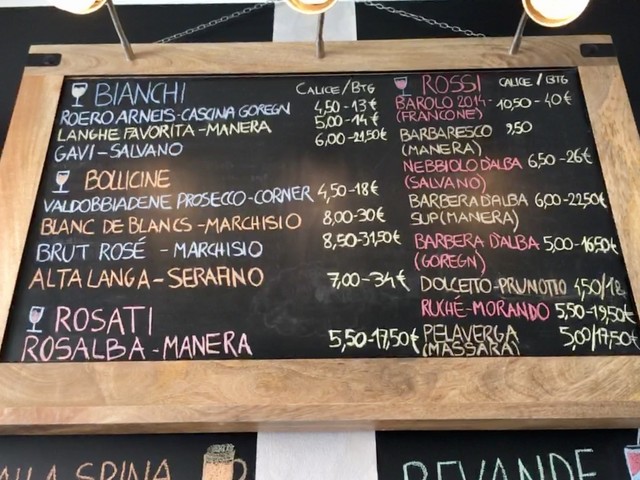 BIANCHI CALICE/BTG
ROERO ARNEIS-CASCINA GOREGN 4,50-13€
LANGHE FAVORITA-MANERA 5,00-14€
GAVI-SALVANO 6,00-21,50€
BOLLICINE
VALDOBBIADENE PROSECCO-CORNER 4,50-18€
BLANC DE BLANCS-MARCHISIO 8,00-30€
BRUT ROSÉ - MARCHISIO 8,50-31,50€
ALTA LANGA-SERAFINO 7,00-34€
ROSATI
ROSALBA-MANERA 5,50-17,50€
ROSSI CALICE/BTG
BAROLO 2014- 10,50-40€
(FRANCONE)
BARBARESCO 9,50
(MANERA)
NEBBIOLO D'ALBA 6,50-26€
(SALVANO)
BARBERA D'ALBA 6,00-22,50€
SUP(MANERA)
BARBERA D'ALBA 5,00-16,50€
(GOREGN)
DOLCETTO-PRUNOTTO 4,50/18
RUCHÉ-MORANDO 5,50-19,50€
PELAVERGA 5,00/17,50€
(MASSARA)
ALLA SPINA
BEVANDE